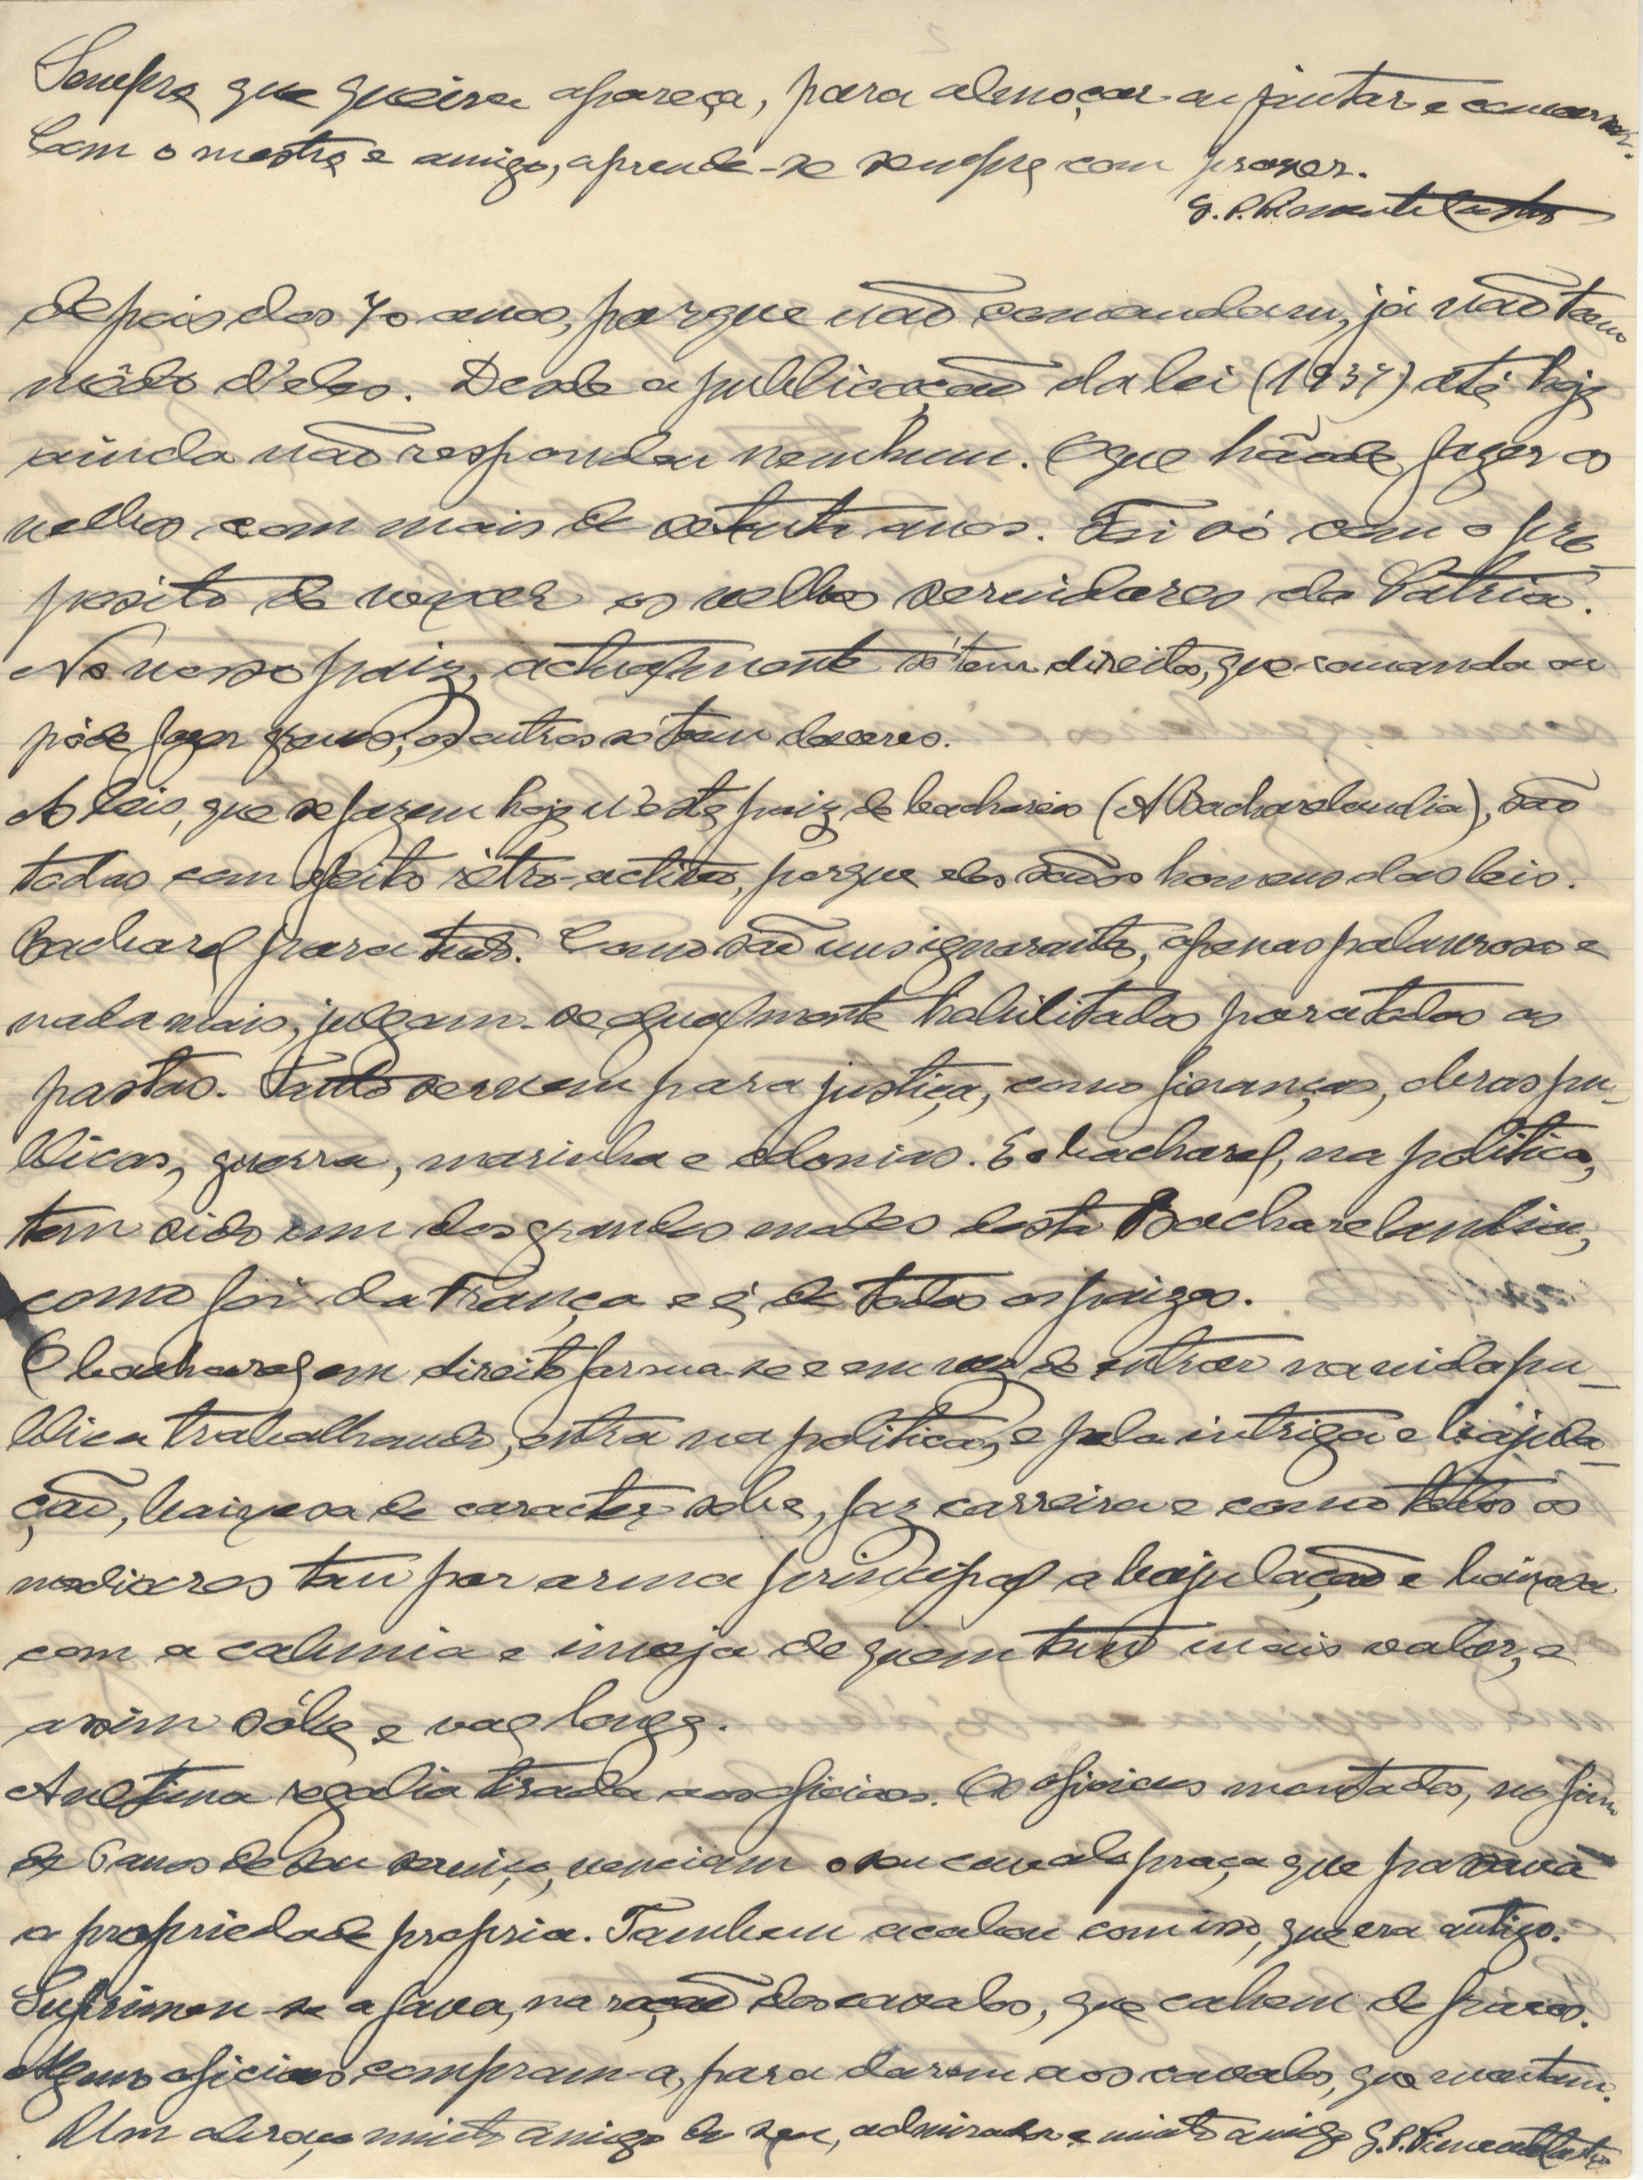 Sempre que queira apareça, para almoçar ou jantar e conversar.
Com o mestre e amigo, aprende-se sempre com prazer.
G. P. Pimentel Castro
depois dos 70 anos, porque não comandam, já não tem
mêdo d'eles. Desde a publicação da lei (1937) até hoje
ainda não respondeu nenhum. O que hãode fazer os
velhos com mais de setenta anos. Foi só com o pro-
posito de vexar os velhos servidores da Patria.
No nosso paiz, actualmente só tem direitos, que comanda ou
póde fazer, os outros só tem deveres.
As leis, que se fazem hoje n'este paiz de bachareis (A Bacharelandia), são
todas com efeito rétro-activo, porque eles são os homens das leis.
Bacharel para tudo. Como são uns ignorantes, apenas palavroso e
nada mais, julgam-se egualmente habilitados para todas as
pastas. Tanto servem para justiça, como finanças, obras pu-
blicas, guerra, marinha e colonias. E o bacharel, na politica,
tem sido um dos grandes males desta Bacharelandia,
como foi da França e é de todos os paizes.
O bacharel em direito forma-se e em vez de entrar na vida pu-
blica trabalhando, entra na politica, e pela intriga e bajula-
ção, baixesa de caracter sobe, faz carreira e como todos os
mediocres tem por arma principal a bajulação e baixesa
com a calumia e inveja de quem tem mais valor, e
assim sóbe e vae longe.
A ultima regalia tirada aos oficiaes. Os oficiaes montados, no fim
de 6 anos de seu serviço, venciam o seu cavalo praça que passava
a propriedade propria. Tambem acabou com isso, que era antigo.
Suprimou-se a fava, na ração dos cavalos, que cahem de fracos.
Alguns oficiaes compram-a, para darem aos cavalos, que montam.
Um abraço muito amigo do seu, admirador e muito amigo G. P. Pimentel Castro